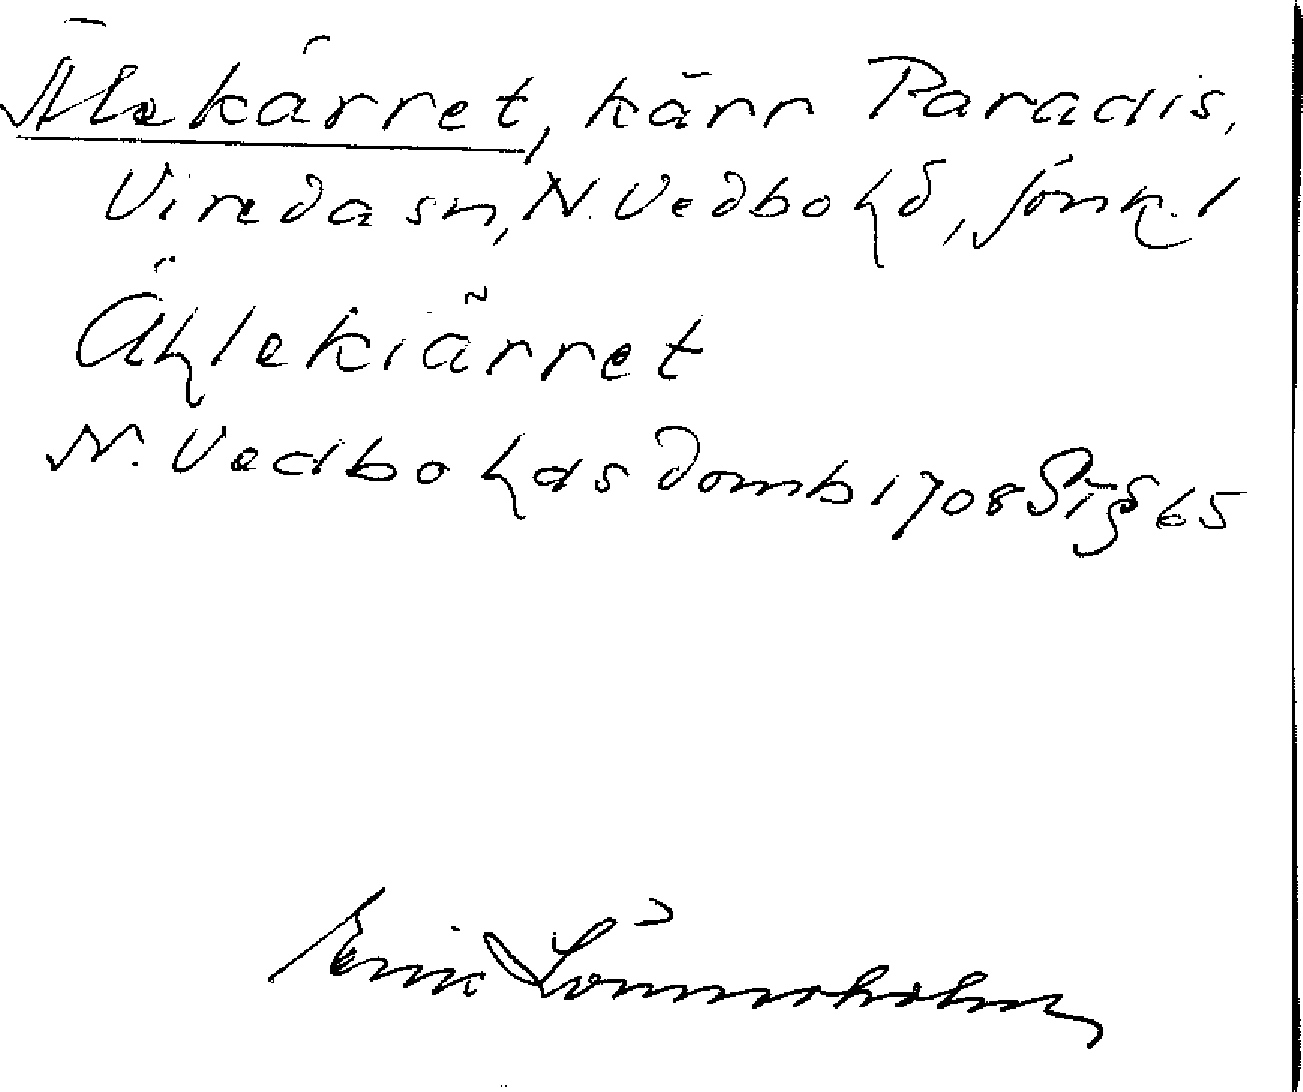 Älekärret, kärr Paradis,
Vireda sn, N. Vedbo hd, Jönk. l
Ählekiärret
N. Vedbo hds domb 1708 ST § 65
Erik Lönnerholm